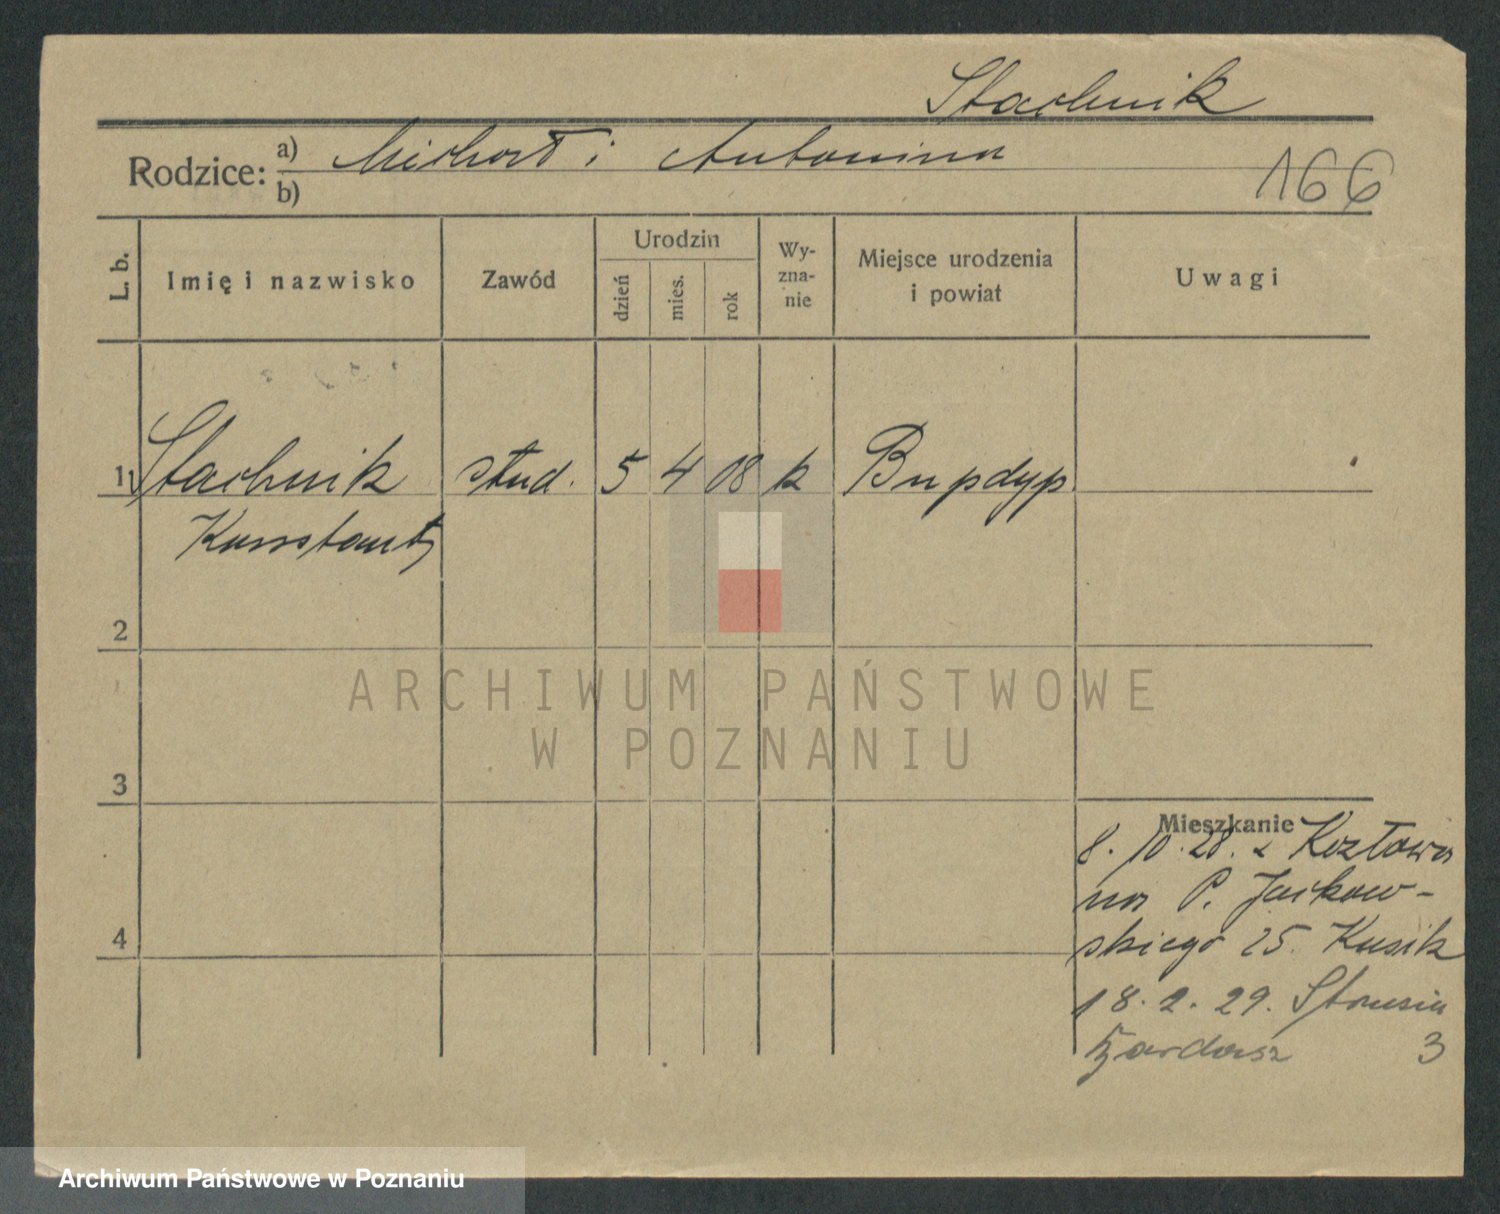 Stachnik
Rodzice: a) Michał i Antonina
b)
166
L. b.
Imię i nazwisko
Zawód
Urodzin
dzień
mies.
rok
Wy-
zna-
nie
Miejsce urodzenia
i powiat
Uwagi
1) Stachnik stud. 5 4 08 k
Konstanty
2
3
4
Mieszkanie
8. 10. 28. z Kozłowa
na P. Jackow-
skiego 25. Kusik
18. 2. 29. Strusia
3
ARCHIWUM PAŃSTWOWE
W POZNANIU
Archiwum Państwowe w Poznaniu